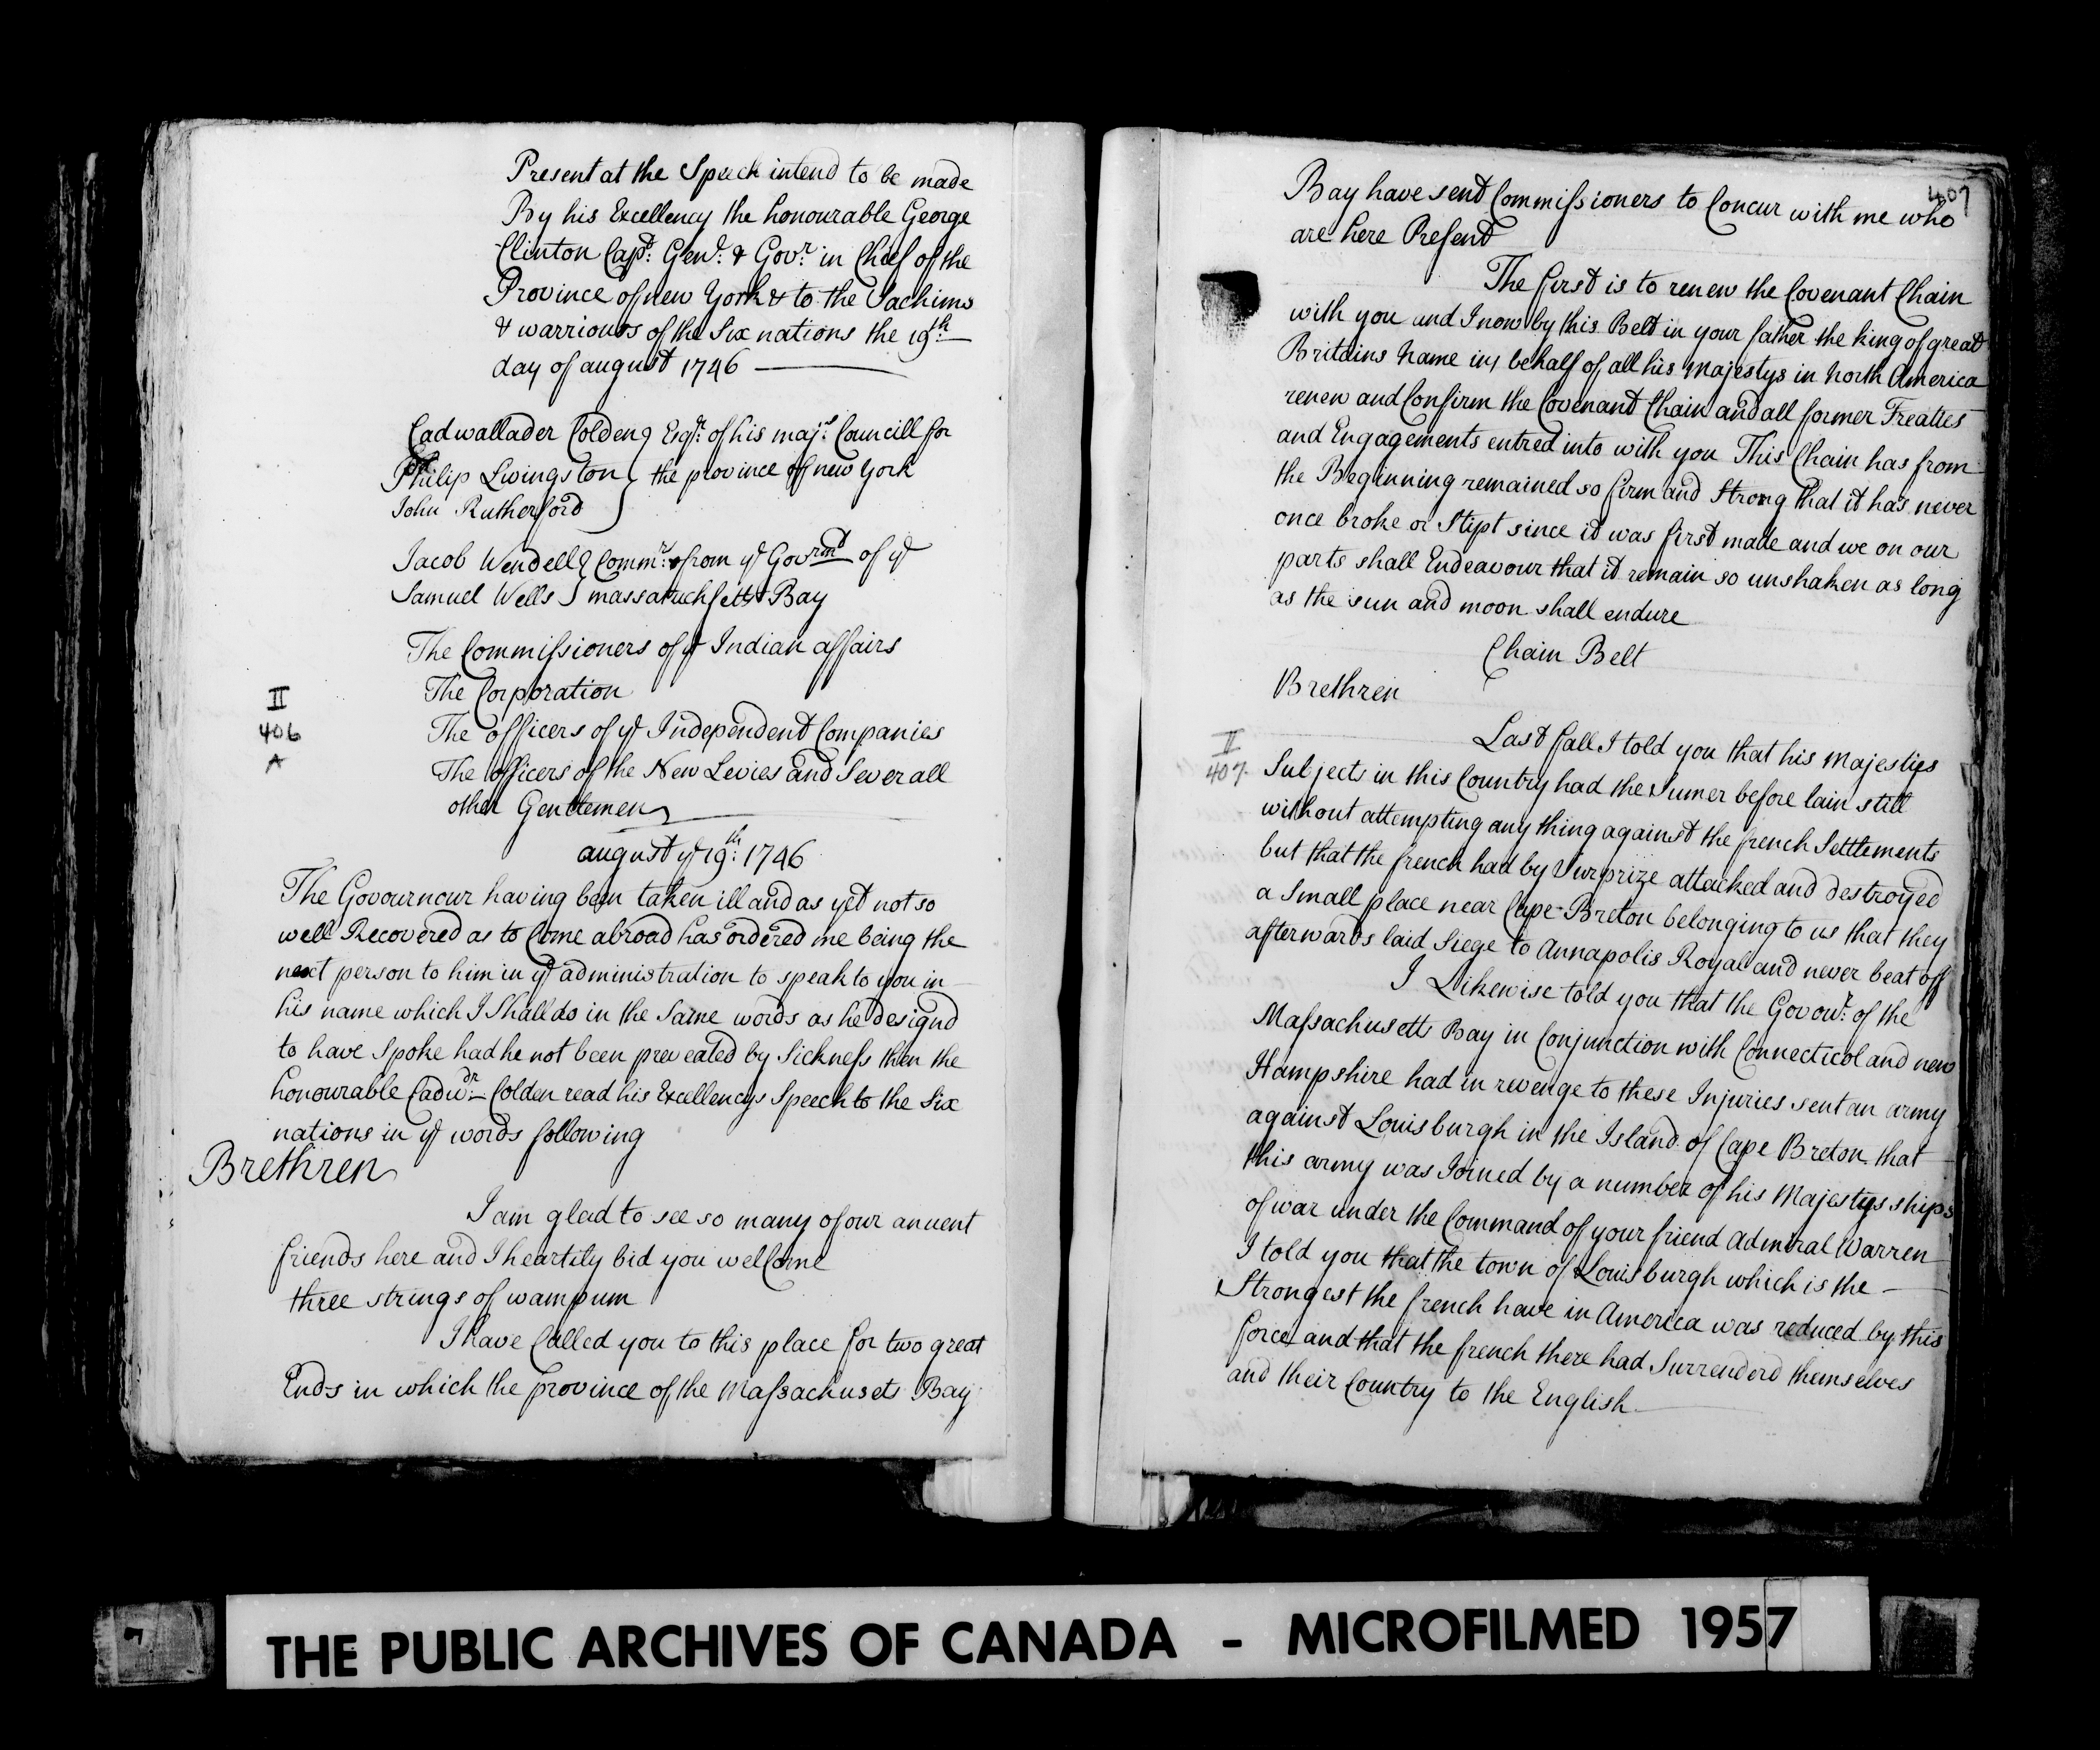 Present at the Speech intend to be made
By his Excellency the honourable George
Clinton Capt: Genl: & Govr: in Chief of the
Province of new York & to the Sachims
& warriours of the Six nations the 19th:
day of august 1746
Cadwallader Colden } Esqr: of his majs: Councill for
Philip Livingston } the province of new york
John Rutherford }
Jacob Wendell } Commrs: from ye Govrmt of ye
Samuel Wells } massatuchsetts Bay
The Commissioners of ye Indian affairs
The Corporation
II
406
A
The officers of ye Independent Companies
The officers of the New Levies and Severall
other Gentlemen
august ye 19th: 1746
The Govournour having been taken ill and as yet not so
well Recovered as to Come abroad has ordered me being the
next person to him in ye administration to speak to you in
his name which I Shall do in the Same words as he designd
to have Spoke had he not been preveated by Sickness then the
honourable Cadwdr: Colden read his Excellencys Speech to the Six
nations in ye words following
Brethren
I am glad to see so many of our antient
friends here and I heartily bid you wellcome
three strings of wampum
I have Called you to this place for two great
Ends in which the province of the Massachusets Bay
407
Bay have send Commissioners to Concur with me who
are here Present
The first is to renew the Covenant Chain
with you and I now by this Belt in your father the king of great
Britains Name in, behalf of all his Majestys in North America
renew and Confirm the Covenant Chain and all former Treaties
and Engagements entred into with you This Chain has from
the Beginning remained so firm and Strong that it has never
once broke or Slipt since it was first made and we on our
parts shall Endeavour that it remain so unshaken as long
as the sun and moon shall endure
Chain Belt
Brethren
II
407
Last fall I told you that his Majesties
Subjects in this Country had the Sumer before lain still
without attempting any thing against the french Settlements
but that the french had by Surprize attacked and destroyed
a Small place near Cape-Breton belonging to us that they
afterwards laid Siege to Annapolis Royal and never beat off
I Likewise told you that the Govour: of the
Massachusetts Bay in Conjunction with Connecticol and new
Hampshire had in revenge to these Injuries sent an army
against Louisburgh in the Island of Cape Breton that
this army was Joined by a number of his Majestys ships
of war under the Command of your friend Admiral Warren
I told you that the town of Louisburgh which is the
Strongest the french have in America was reduced by this
force and that the french there had Surrenderd themselves
and their Country to the English
THE PUBLIC ARCHIVES OF CANADA - MICROFILMED 1957